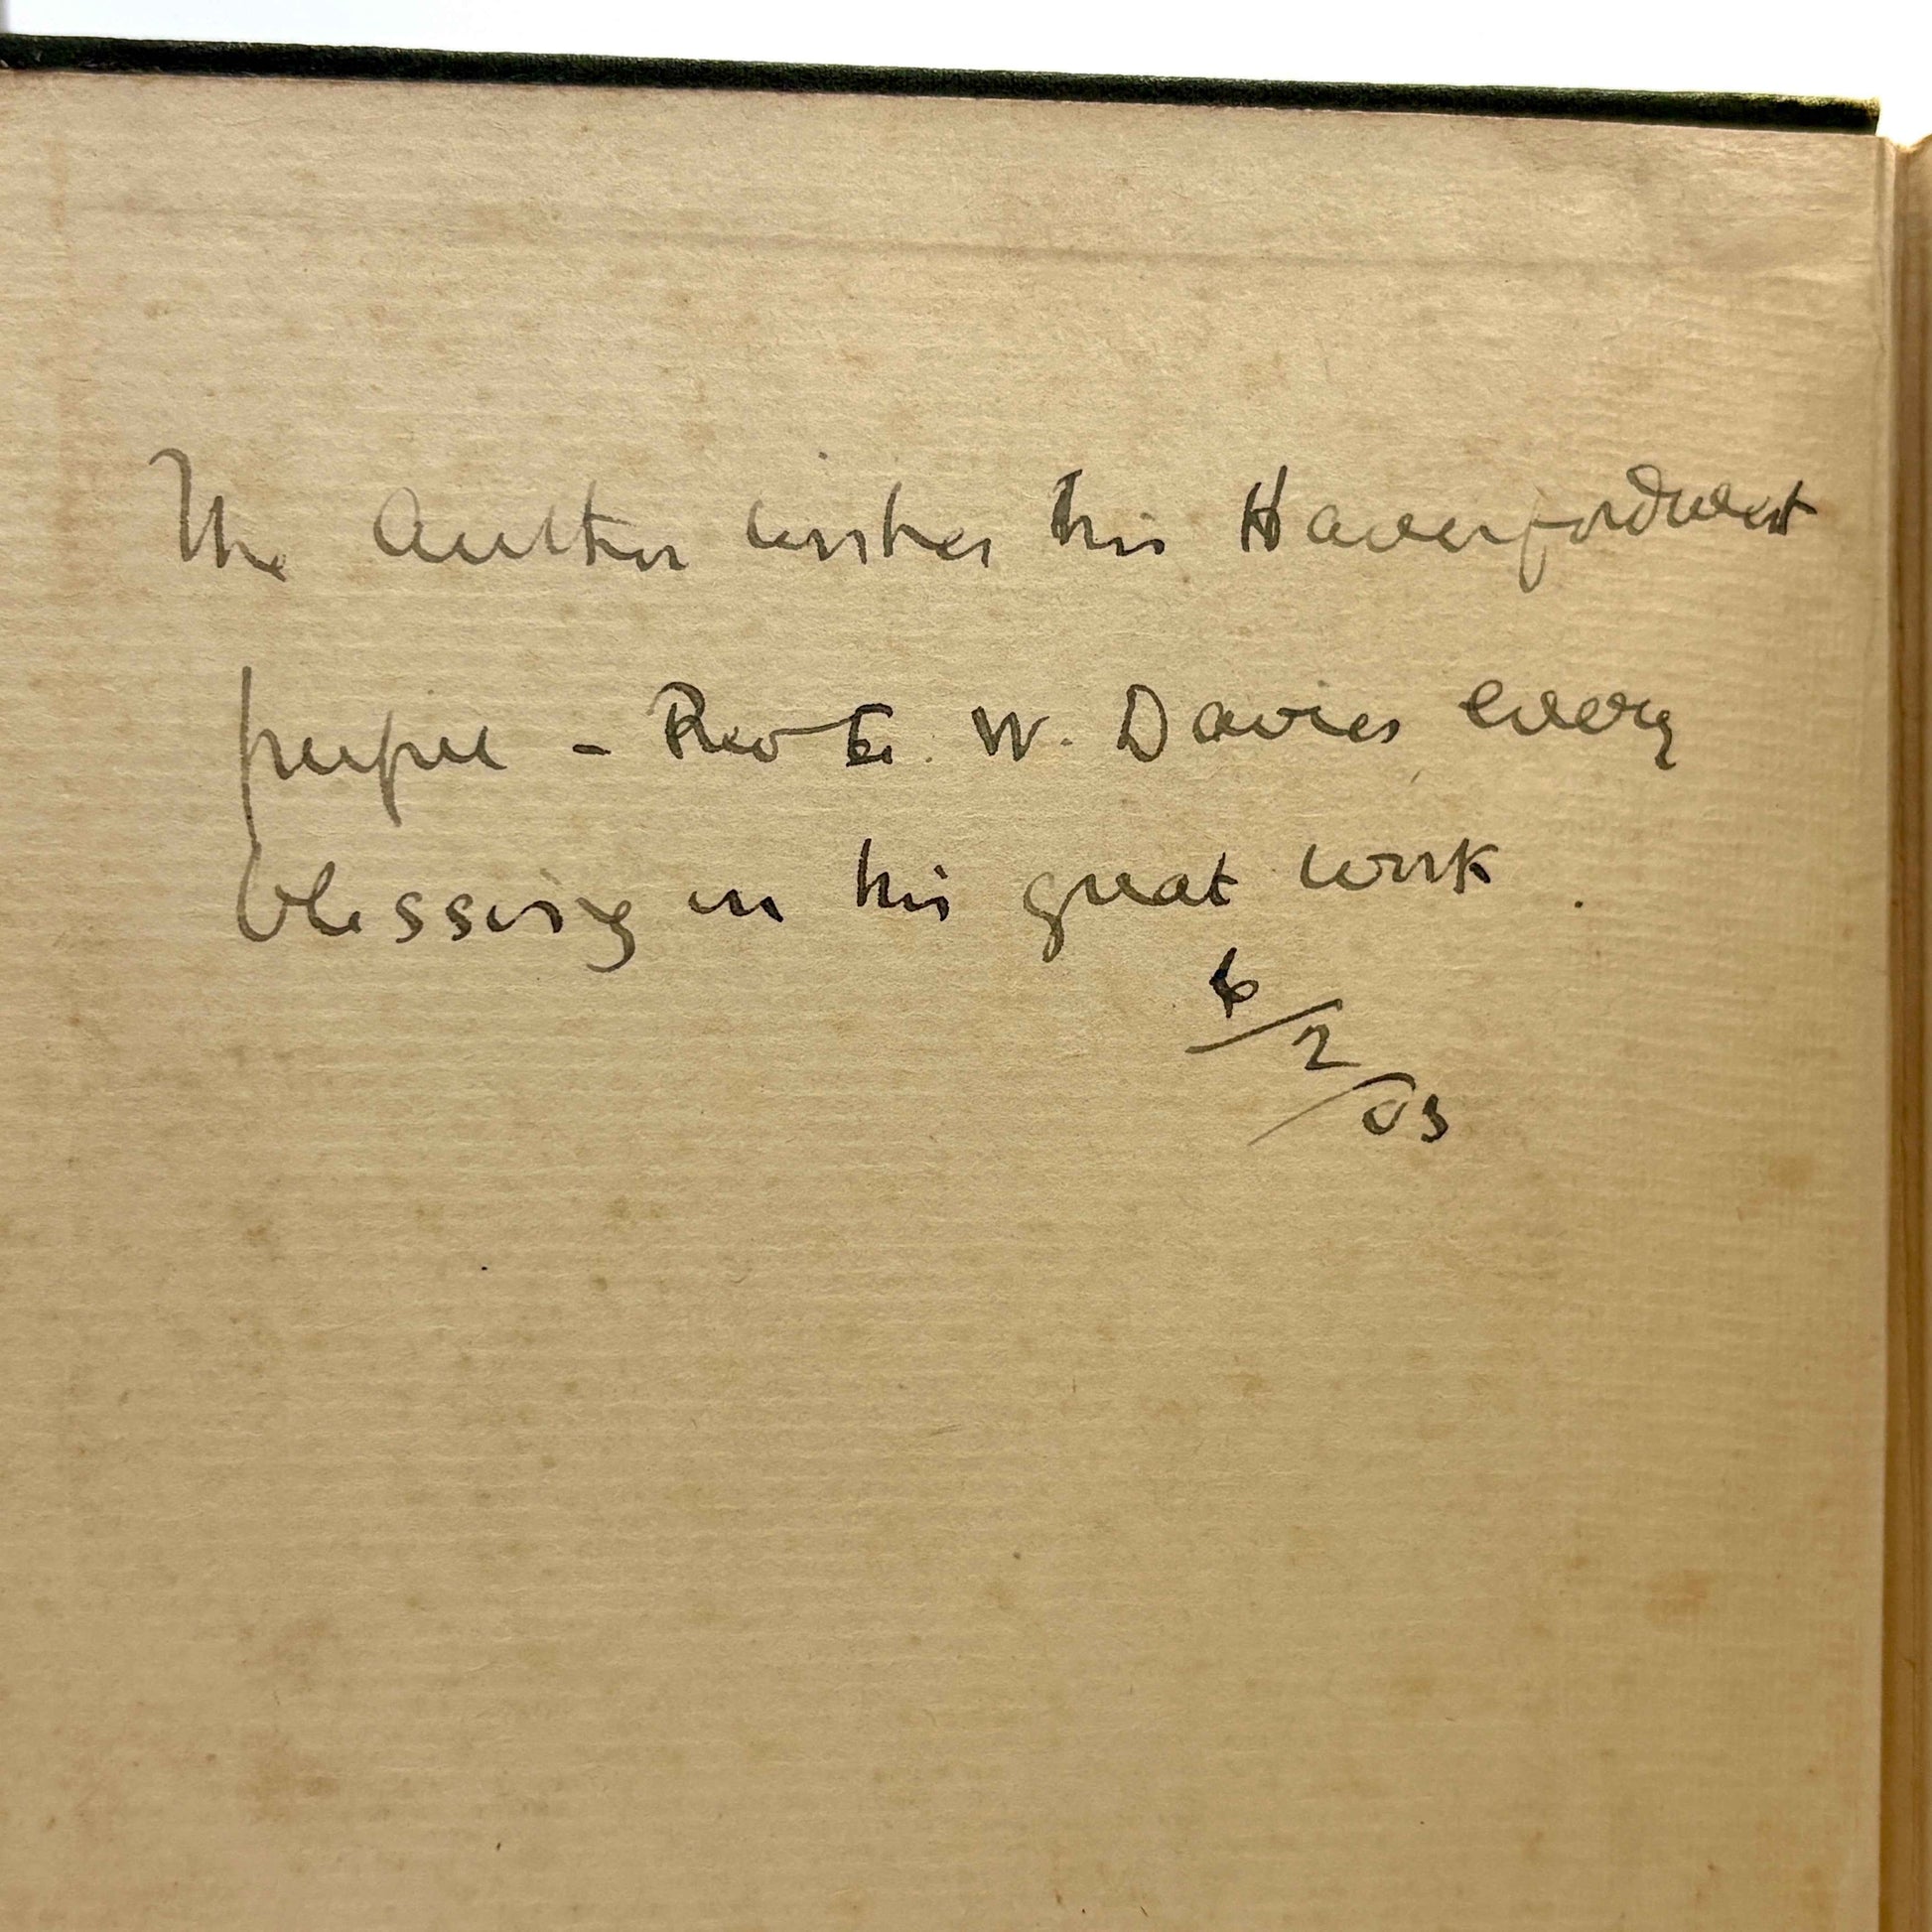 The Author wishes his Haverfordwest
pupil - Rev E. W. Davies every
blessing in his great work.
6/2/03